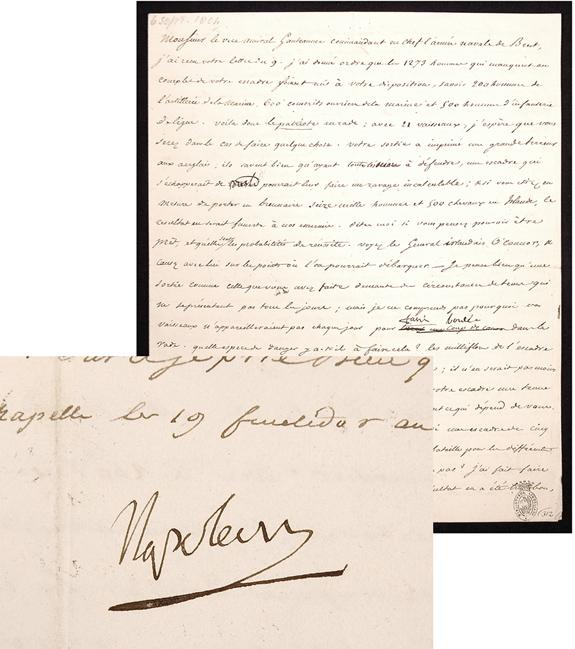 6 Sept. 1804
Monsieur le vice amiral Ganteaume commandant en chef l'armée navale de Brest,
j'ai reçu votre lettre du 9. j'ai donné ordre que les 1273 hommes qui manquent au
complet de votre escadre soient mis à votre disposition, savoir 200 hommes de
l'artillerie de la marine, 600 conscrits ouvriers de la marine et 500 hommes d'infanterie
de ligne. voilà donc le patriote en rade; avec 21 vaisseaux, j'espère que vous
serez dans le cas de faire quelque chose. votre sortie a imprimé une grande terreur
aux anglais; ils savent bien qu'ayant toutes à défendre, une escadre qui
s'échapperait de pourrait leur faire un ravage incalculable; & si vous étiez en
mesure de porter en brumaire seize mille hommes et 500 chevaux en Irlande, le
résultat en serait funeste à nos ennemis. dites moi si vous pensez pouvoir être
prêt, et quelles sont les probabilités de réussite. voyez le Général irlandais O'Connor, &
causez avec lui sur les points où l'on pourrait débarquer — Je pense bien qu'une
sortie comme celle que vous avez faite demande des circonstances de tems qui
ne se présentent pas tous les jours; mais je ne comprends pas pourquoi vos
vaisseaux n'appareilleraient pas chaque jour pour faire bordée dans la
rade: quelle espèce de danger y a-t-il à faire cela? les de l'escadre
; il n'en serait pas moins
votre escadre une tenue
ce qui dépend de vous.
une escadre de cinq
bataille pour les différents
pas? j'ai fait faire
résultat en a été très bon,
312
chapelle le 19 fructidor an
Napoleon